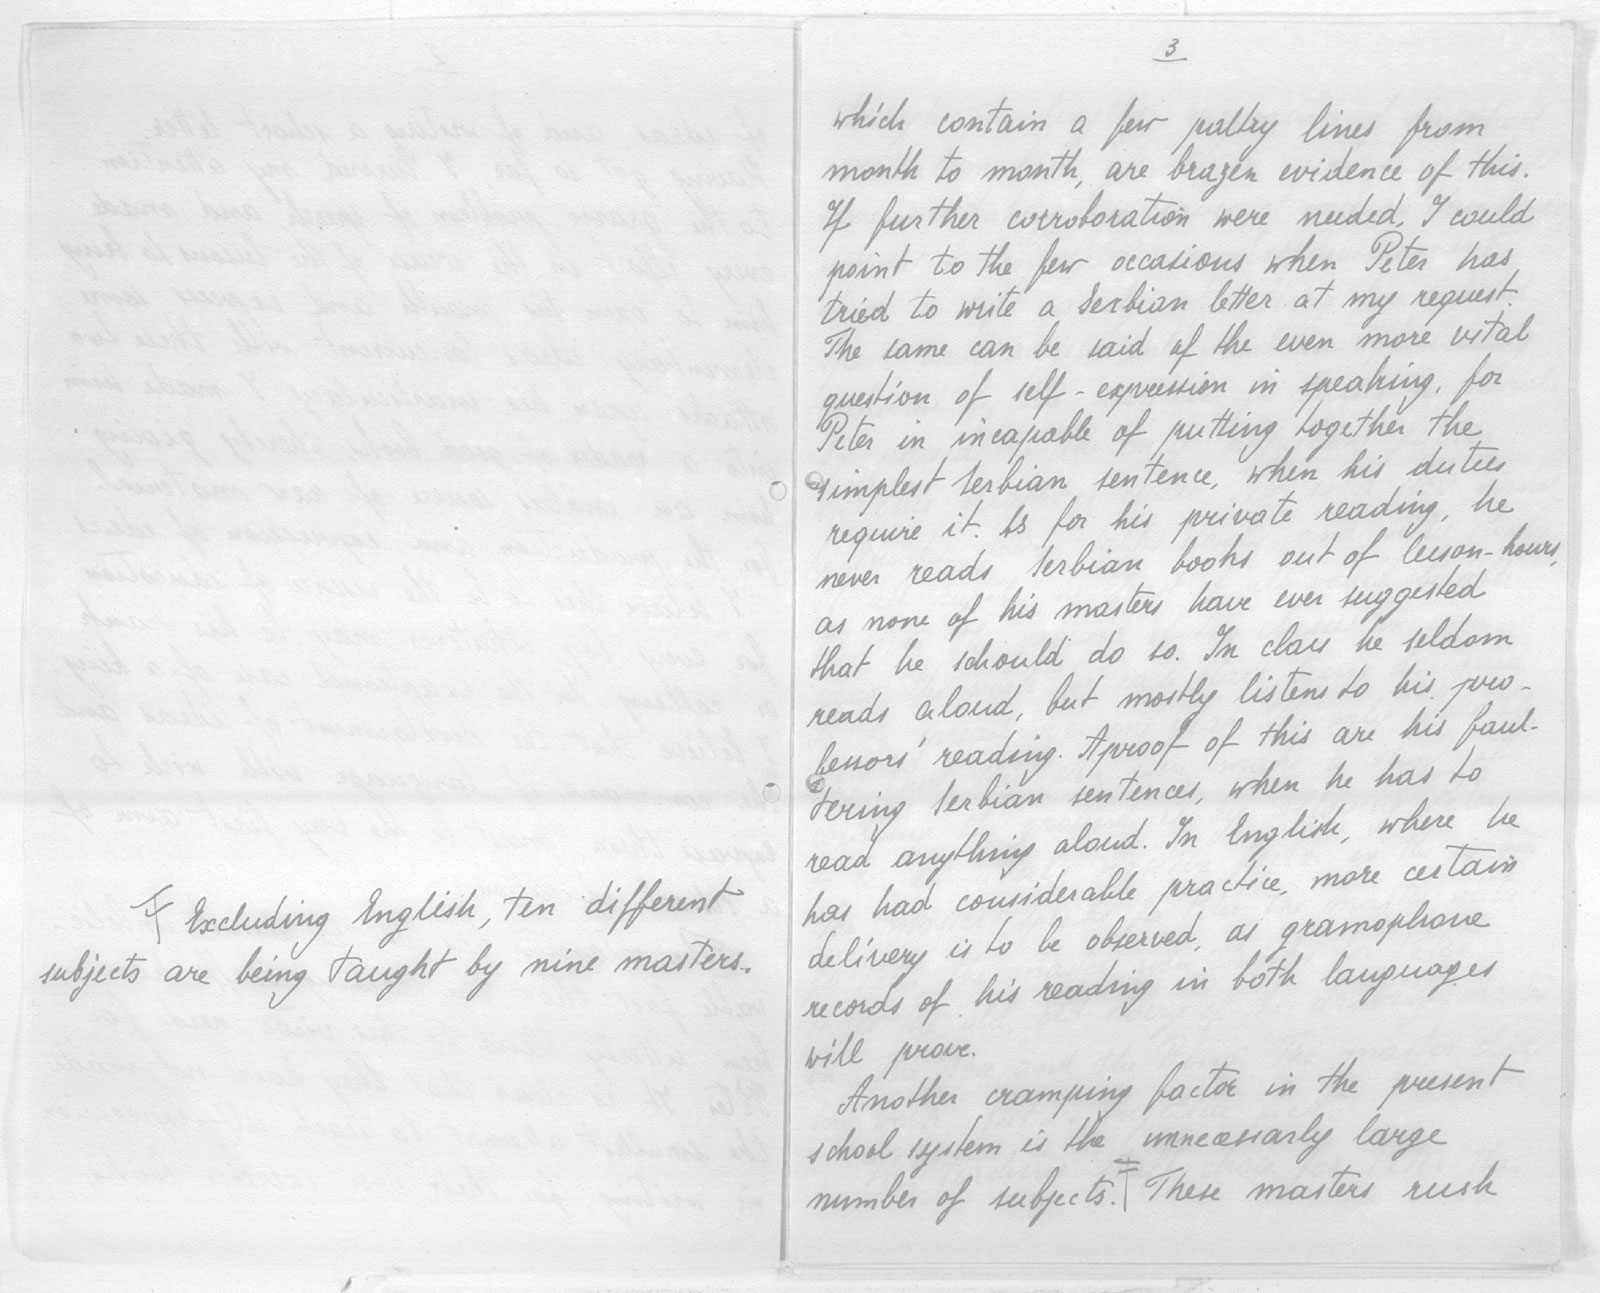 Excluding English, ten different
subjects are being taught by nine masters.
3
which contain a few paltry lines from
month to month, are brazen evidence of this.
If further corroboration were needed, I could
point to the few occasions when Peter has
tried to write a Serbian letter at my request.
The same can be said of the even more vital
question of self-expression in speaking, for
Peter in incapable of putting together the
simplest Serbian sentence, when his duties
require it. As for his private reading, he
never reads Serbian books out of lesson-hours,
as none of his masters have ever suggested
that he schould do so. In class he seldom
reads aloud, but mostly listens to his pro-
fessors' reading. A proof of this are his faul-
tering Serbian sentences, when he has to
read anything aloud. In English, where he
has had considerable practice, more certain
delivery is to be observed, as gramophone
records of his reading in both languages
will prove.
Another cramping factor in the present
school system is the unnecessarly large
number of subjects. These masters rush